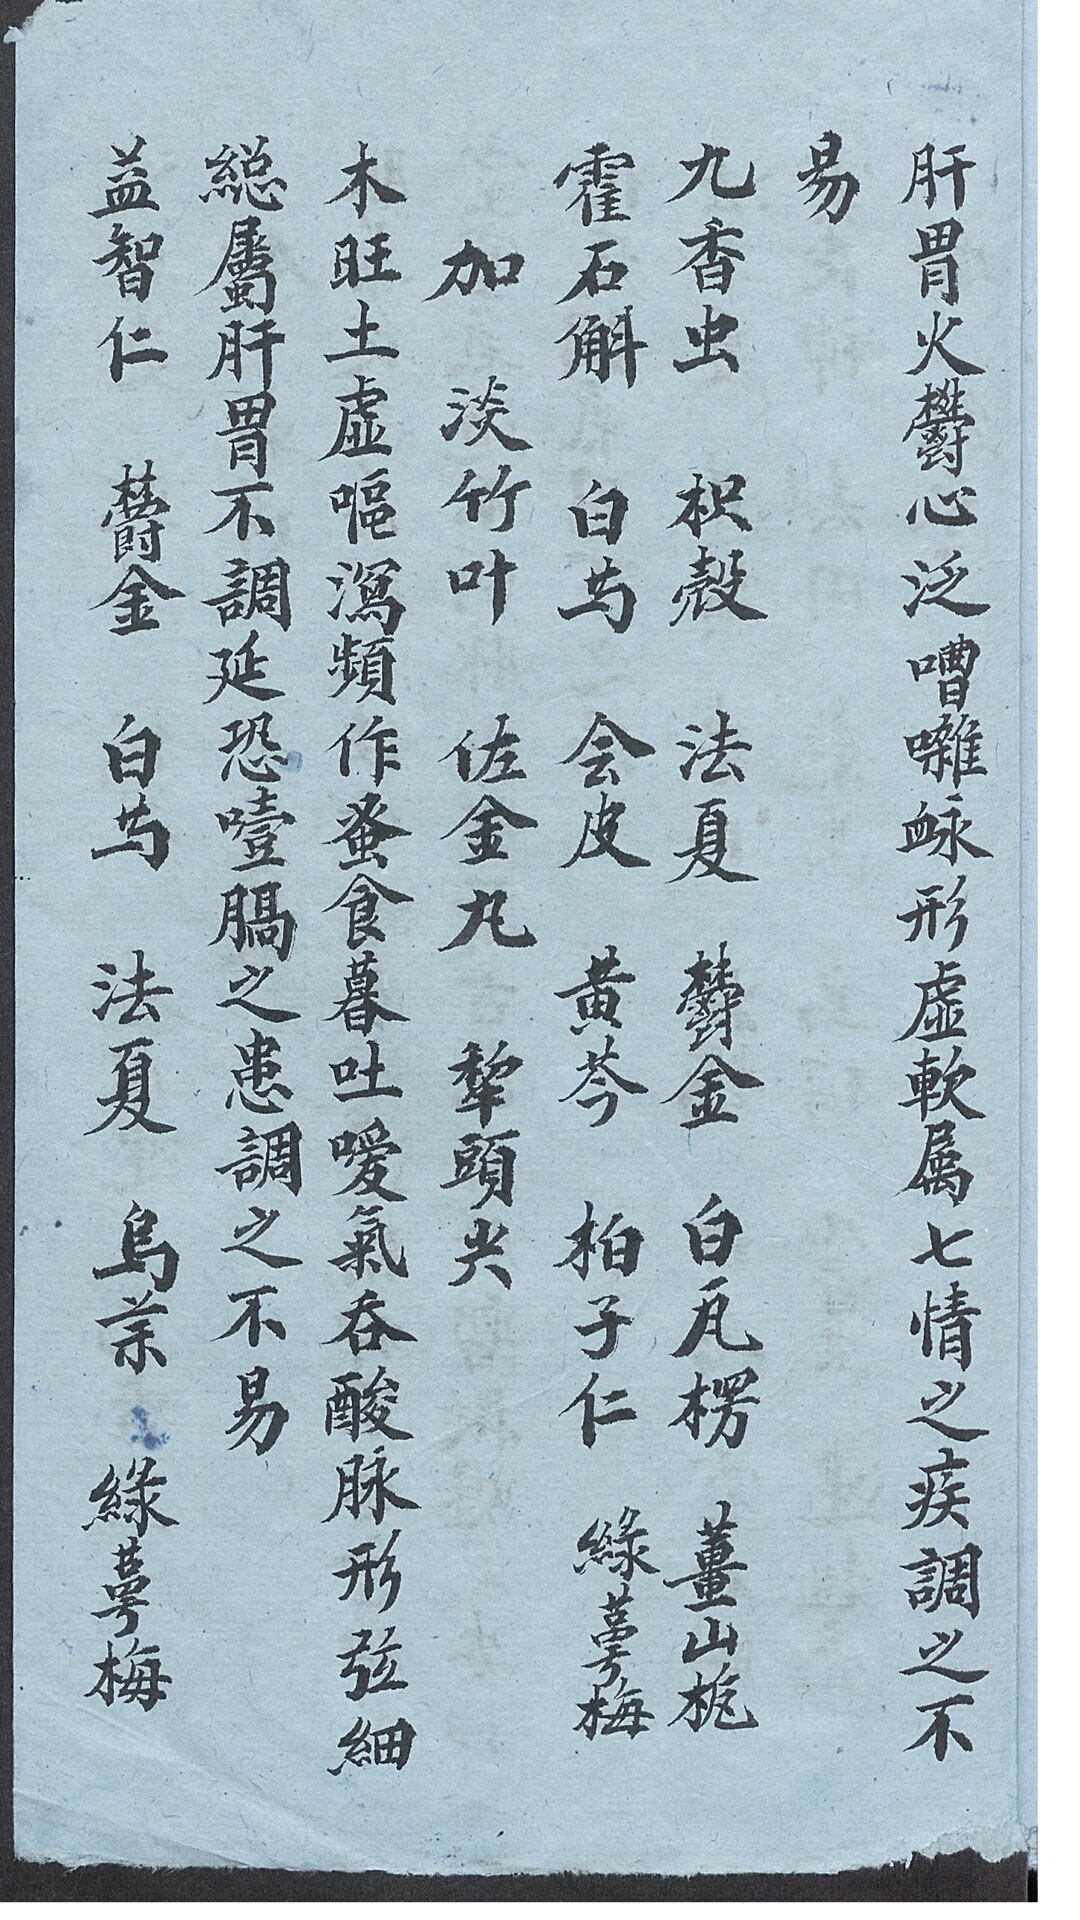 肝胃火鬱心泛嘈囃衇形虛軟属七情之疾調之不
易
九香虫 枳殼 法夏 鬱金 白瓦楞 薑山栀
霍石斛 白芍 会皮 黄芩 柏子仁 綠萼梅
加 淡竹叶 佐金丸 犂頭尖
木旺土虛嘔瀉頻作蚤食暮吐噯氣吞酸脉形弦細
総屬肝胃不調延恐噎膈之患調之不易
益智仁 鬱金 白芍 法夏 烏茱 綠萼梅